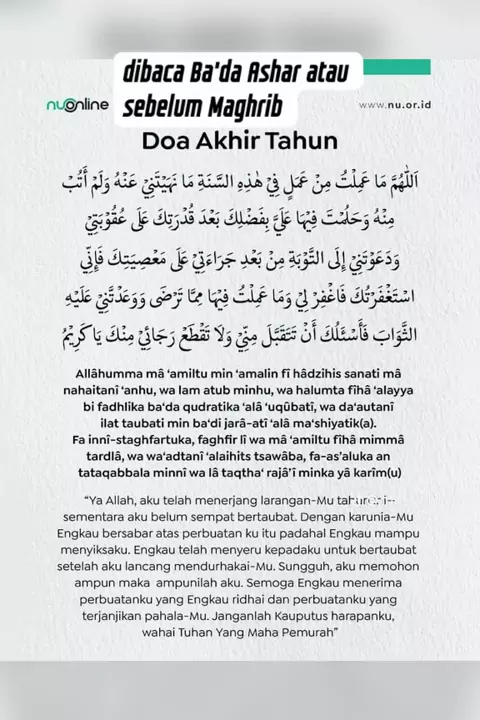 dibaca Ba'da Ashar atau
sebelum Maghrib
nuonline
www.nu.or.id
Doa Akhir Tahun
اَللّٰهُمَّ مَا عَمِلْتُ مِنْ عَمَلٍ فِيْ هٰذِهِ السَّنَةِ مَا نَهَيْتَنِيْ عَنْهُ وَلَمْ أَتُبْ
مِنْهُ وَحَلُمْتَ فِيْهَا عَلَيَّ بِفَضْلِكَ بَعْدَ قُدْرَتِكَ عَلَى عُقُوْبَتِيْ
وَدَعَوْتَنِيْ إِلَى التَّوْبَةِ مِنْ بَعْدِ جَرَاءَتِيْ عَلَى مَعْصِيَتِكَ فَإِنِّي
اسْتَغْفَرْتُكَ فَاغْفِرْ لِيْ وَمَا عَمِلْتُ فِيْهَا مِمَّا تَرْضَى وَوَعَدْتَّنِيْ عَلَيْهِ
الثَّوَابَ فَأَسْئَلُكَ أَنْ تَتَقَبَّلَ مِنِّيْ وَلَا تَقْطَعْ رَجَائِيْ مِنْكَ يَا كَرِيْمُ
Allâhumma mâ ‘amiltu min ‘amalin fî hâdzihis sanati mâ
nahaitanî ‘anhu, wa lam atub minhu, wa halumta fîhâ ‘alayya
bi fadhlika ba‘da qudratika ‘alâ ‘uqûbatî, wa da‘autanî
ilat taubati min ba‘di jarâ-atî ‘alâ ma‘shiyatik(a).
Fa innî-staghfartuka, faghfir lî wa mâ ‘amiltu fîhâ mimmâ
tardlâ, wa wa‘adtanî ‘alaihits tsawâba, fa-as’aluka an
tataqabbala minnî wa lâ taqtha‘ rajâ’î minka yâ karîm(u)
“Ya Allah, aku telah menerjang larangan-Mu
sementara aku belum sempat bertaubat. Dengan karunia-Mu
Engkau bersabar atas perbuatan ku itu padahal Engkau mampu
menyiksaku. Engkau telah menyeru kepadaku untuk bertaubat
setelah aku lancang mendurhakai-Mu. Sungguh, aku memohon
ampun maka  ampunilah aku. Semoga Engkau menerima
perbuatanku yang Engkau ridhai dan perbuatanku yang
terjanjikan pahala-Mu. Janganlah Kauputus harapanku,
wahai Tuhan Yang Maha Pemurah”